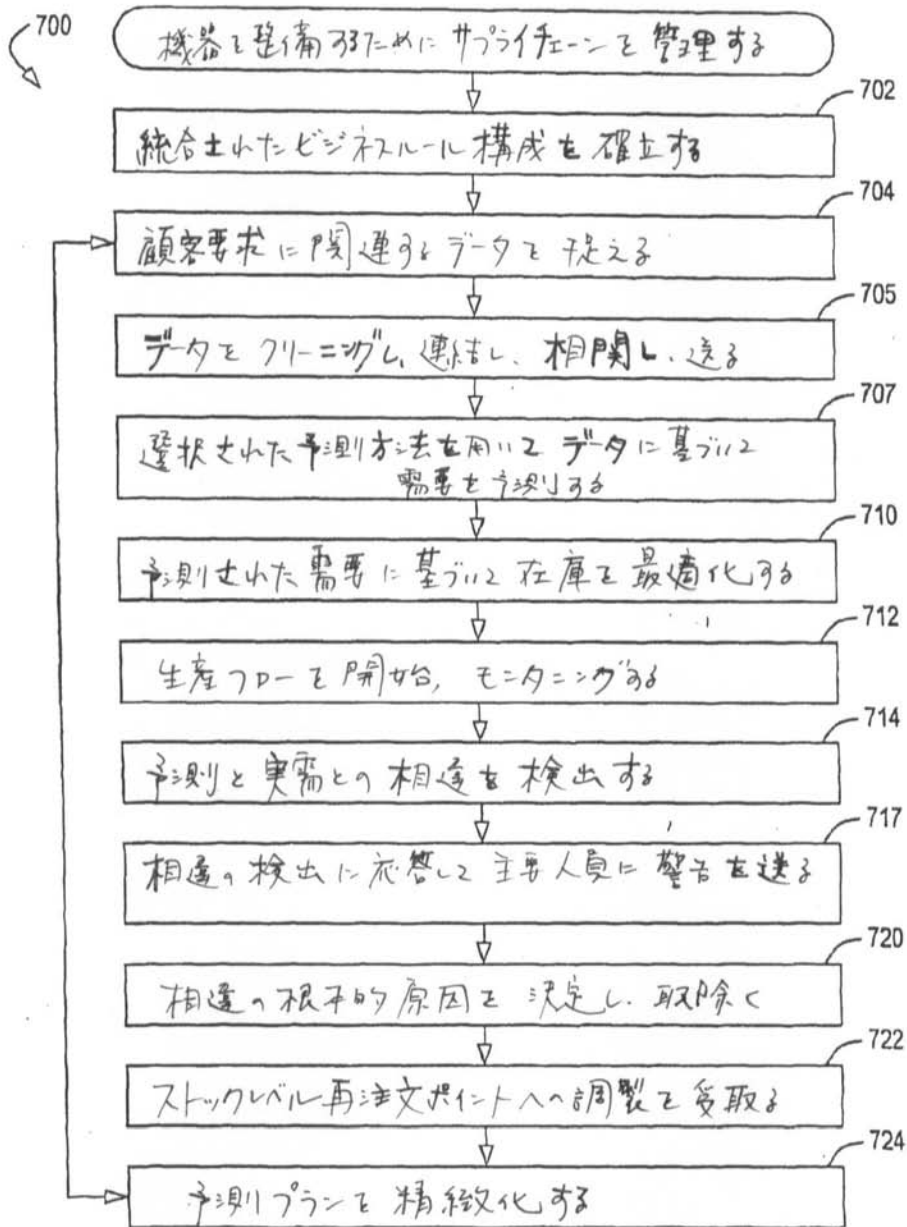 700
機器を整備するためにサプライチェーンを管理する
702
統合されたビジネスルール構成を確立する
704
顧客要求に関連するデータを捉える
705
データをクリーニングし、連結し、相関し、送る
707
選択された予測方法を用いてデータに基づいて
需要を予測する
710
予測された需要に基づいて在庫を最適化する
712
生産フローを開始, モニタニングする
714
予測と実需との相違を検出する
717
相違の検出に応答して主要人員に警告を送る
720
相違の根本的原因を決定し、取除く
722
ストックレベル再注文ポイントへの調製を受取る
724
予測プランを精緻化する